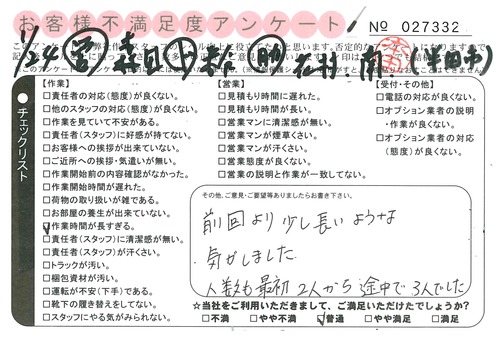 お客様不満足度アンケート
No 027332
1/24
【作業】
□責任者の対応(態度)が良くない。
□他のスタッフの対応(態度)が良くない。
□作業を見ていて不安がある。
□責任者(スタッフ)に好感が持てない。
□お客様への挨拶が出来ていない。
□ご近所への挨拶・気遣いが無い。
□作業開始前の内容確認がなかった。
□作業開始時間が遅れた。
□荷物の取り扱いが雑である。
□お部屋の養生が出来ていない。
☑作業時間が長すぎる。
□責任者(スタッフ)に清潔感が無い。
□責任者(スタッフ)が汗くさい。
□トラックが汚い。
□梱包資材が汚い。
□運転が不安(下手)である。
□靴下の履き替えをしてない。
□スタッフにやる気がみられない。
チェックリスト
【営業】
□見積もり時間に遅れた。
□見積もり時間が長い。
□営業マンに清潔感が無い。
□営業マンが煙草くさい。
□営業マンが汗くさい。
□営業態度が良くない。
□営業の説明と作業が一致してない。
【受付・その他】
□電話の対応が良くない。
□オプション業者の説明
・作業が良くない。
□オプション業者の対応
(態度)が良くない。
その他、ご意見・ご要望等ありましたらお書き下さい。
前回より少し長いような
気がしました
人数も最初2人から途中で3人でした
☆当社をご利用いただきまして、ご満足いただけたでしょうか?
□不満 □やや不満 ☑普通 □やや満足 □満足